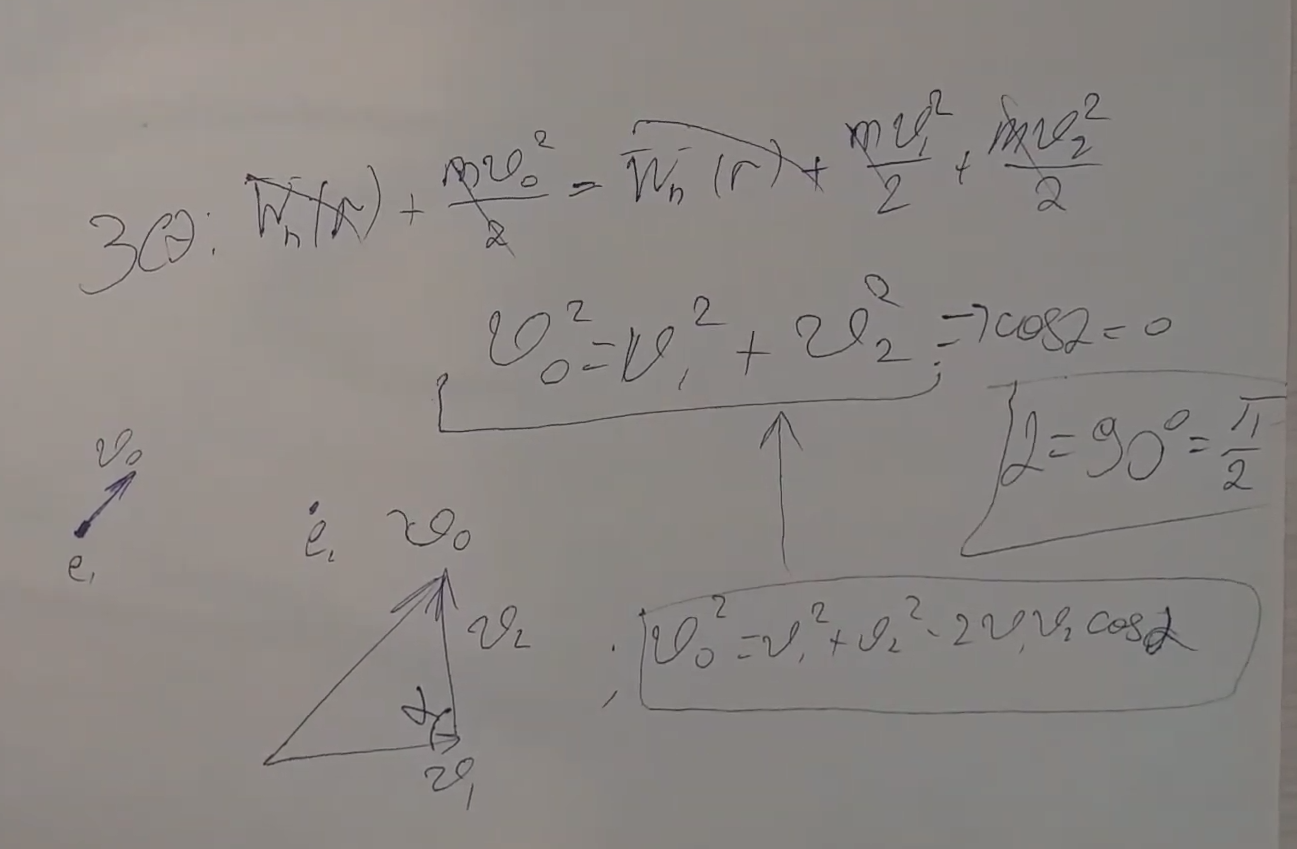 ЗСЭ: Wₙ(r) + mv₀²/2 = Wₙ(r) + mv₁²/2 + mv₂²/2
v₀² = v₁² + v₂² ; => cosα = 0
α = 90° = π/2
v₀
e₁
e₁ v₀
v₂
; v₀² = v₁² + v₂² - 2v₁v₂ cosα
α
v₁